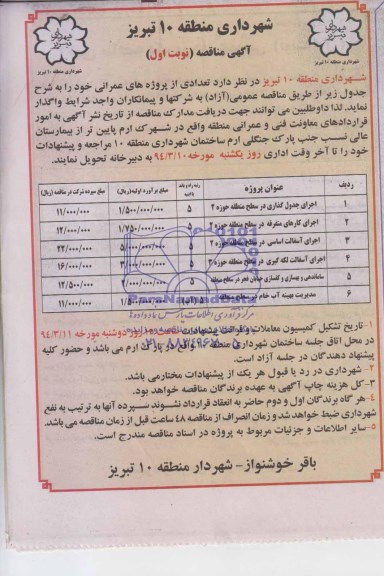 شهرداری منطقه ۱۰ تبریز
آگهی مناقصه (نوبت اول)
شهرداری منطقه ۱۰ تبریز
شهرداری منطقه ۱۰ تبریز
شهرداری منطقه ۱۰ تبریز در نظر دارد تعدادی از پروژه های عمرانی خود را به شرح
جدول زیر از طریق مناقصه عمومی(آزاد) به شرکتها و پیمانکاران واجد شرایط واگذار
نماید. لذا داوطلبین می توانند جهت دریافت مدارک مناقصه از تاریخ نشر آگهی به امور
قراردادهای معاونت فنی و عمرانی منطقه واقع در شهرک ارم پایین تر از بیمارستان
عالی نسب جنب پارک جنگلی ارم ساختمان شهرداری منطقه ۱۰ مراجعه و پیشنهادات
خود را تا آخر وقت اداری روز یکشنبه مورخه ۹۴/۳/۱۰ به دبیرخانه تحویل نمایند.
ردیف عنوان پروژه مبلغ برآورد اولیه(ریال) مبلغ سپرده شرکت در مناقصه (ریال)
۱ اجرای جدول گذاری در سطح منطقه حوزه ۲ ۵ ۱/۵۰۰/۰۰۰/۰۰۰ ۱۱/۰۰۰/۰۰۰
۲ اجرای کارهای متفرقه در سطح منطقه حوزه ۲ ۵ ۱/۷۵۰/۰۰۰/۰۰۰ ۱۲/۰۰۰/۰۰۰
۳ اجرای آسفالت اساسی در سطح منطقه حوزه ۲ ۵ ۲۲/۰۰۰/۰۰۰
۴ اجرای آسفالت لکه گیری در سطح منطقه حوزه ۵ ۱۶/۰۰۰/۰۰۰
۵ ساماندهی و بهسازی و کفسازی خیابان فجر در سطح منطقه ۵ ۱۲/۵۰۰/۰۰۰
۶ مدیریت بهینه آب خام در سطح منطقه ۱۱/۰۰۰/۰۰۰
ParsNamadData
مرکز فرآوری اطلاعات پارس نماد داده ها
۰۲۱-۸۸۳۴۹۶۷۰-۵
۱-تاریخ تشکیل کمیسیون معاملات و قرائت پیشنهادات روز دوشنبه مورخه ۹۴/۳/۱۱
در محل اتاق جلسه ساختمان شهرداری منطقه ۱۰ واقع در پارک ارم می باشد و حضور کلیه
پیشنهاد دهندگان در جلسه آزاد است.
۲-شهرداری در رد یا قبول هر یک از پیشنهادات مختار می باشد.
۳-کل هزینه چاپ آگهی به عهده برندگان مناقصه خواهد بود.
۴-هر گاه برندگان اول و دوم حاضر به انعقاد قرارداد نشوند سپرده آنها به ترتیب به نفع
شهرداری ضبط خواهد شد و زمان انصراف از مناقصه ۴۸ ساعت قبل از زمان مناقصه می باشد.
۵-سایر اطلاعات و جزئیات مربوط به پروژه در اسناد مناقصه مندرج است.
باقر خوشنواز - شهردار منطقه ۱۰ تبریز